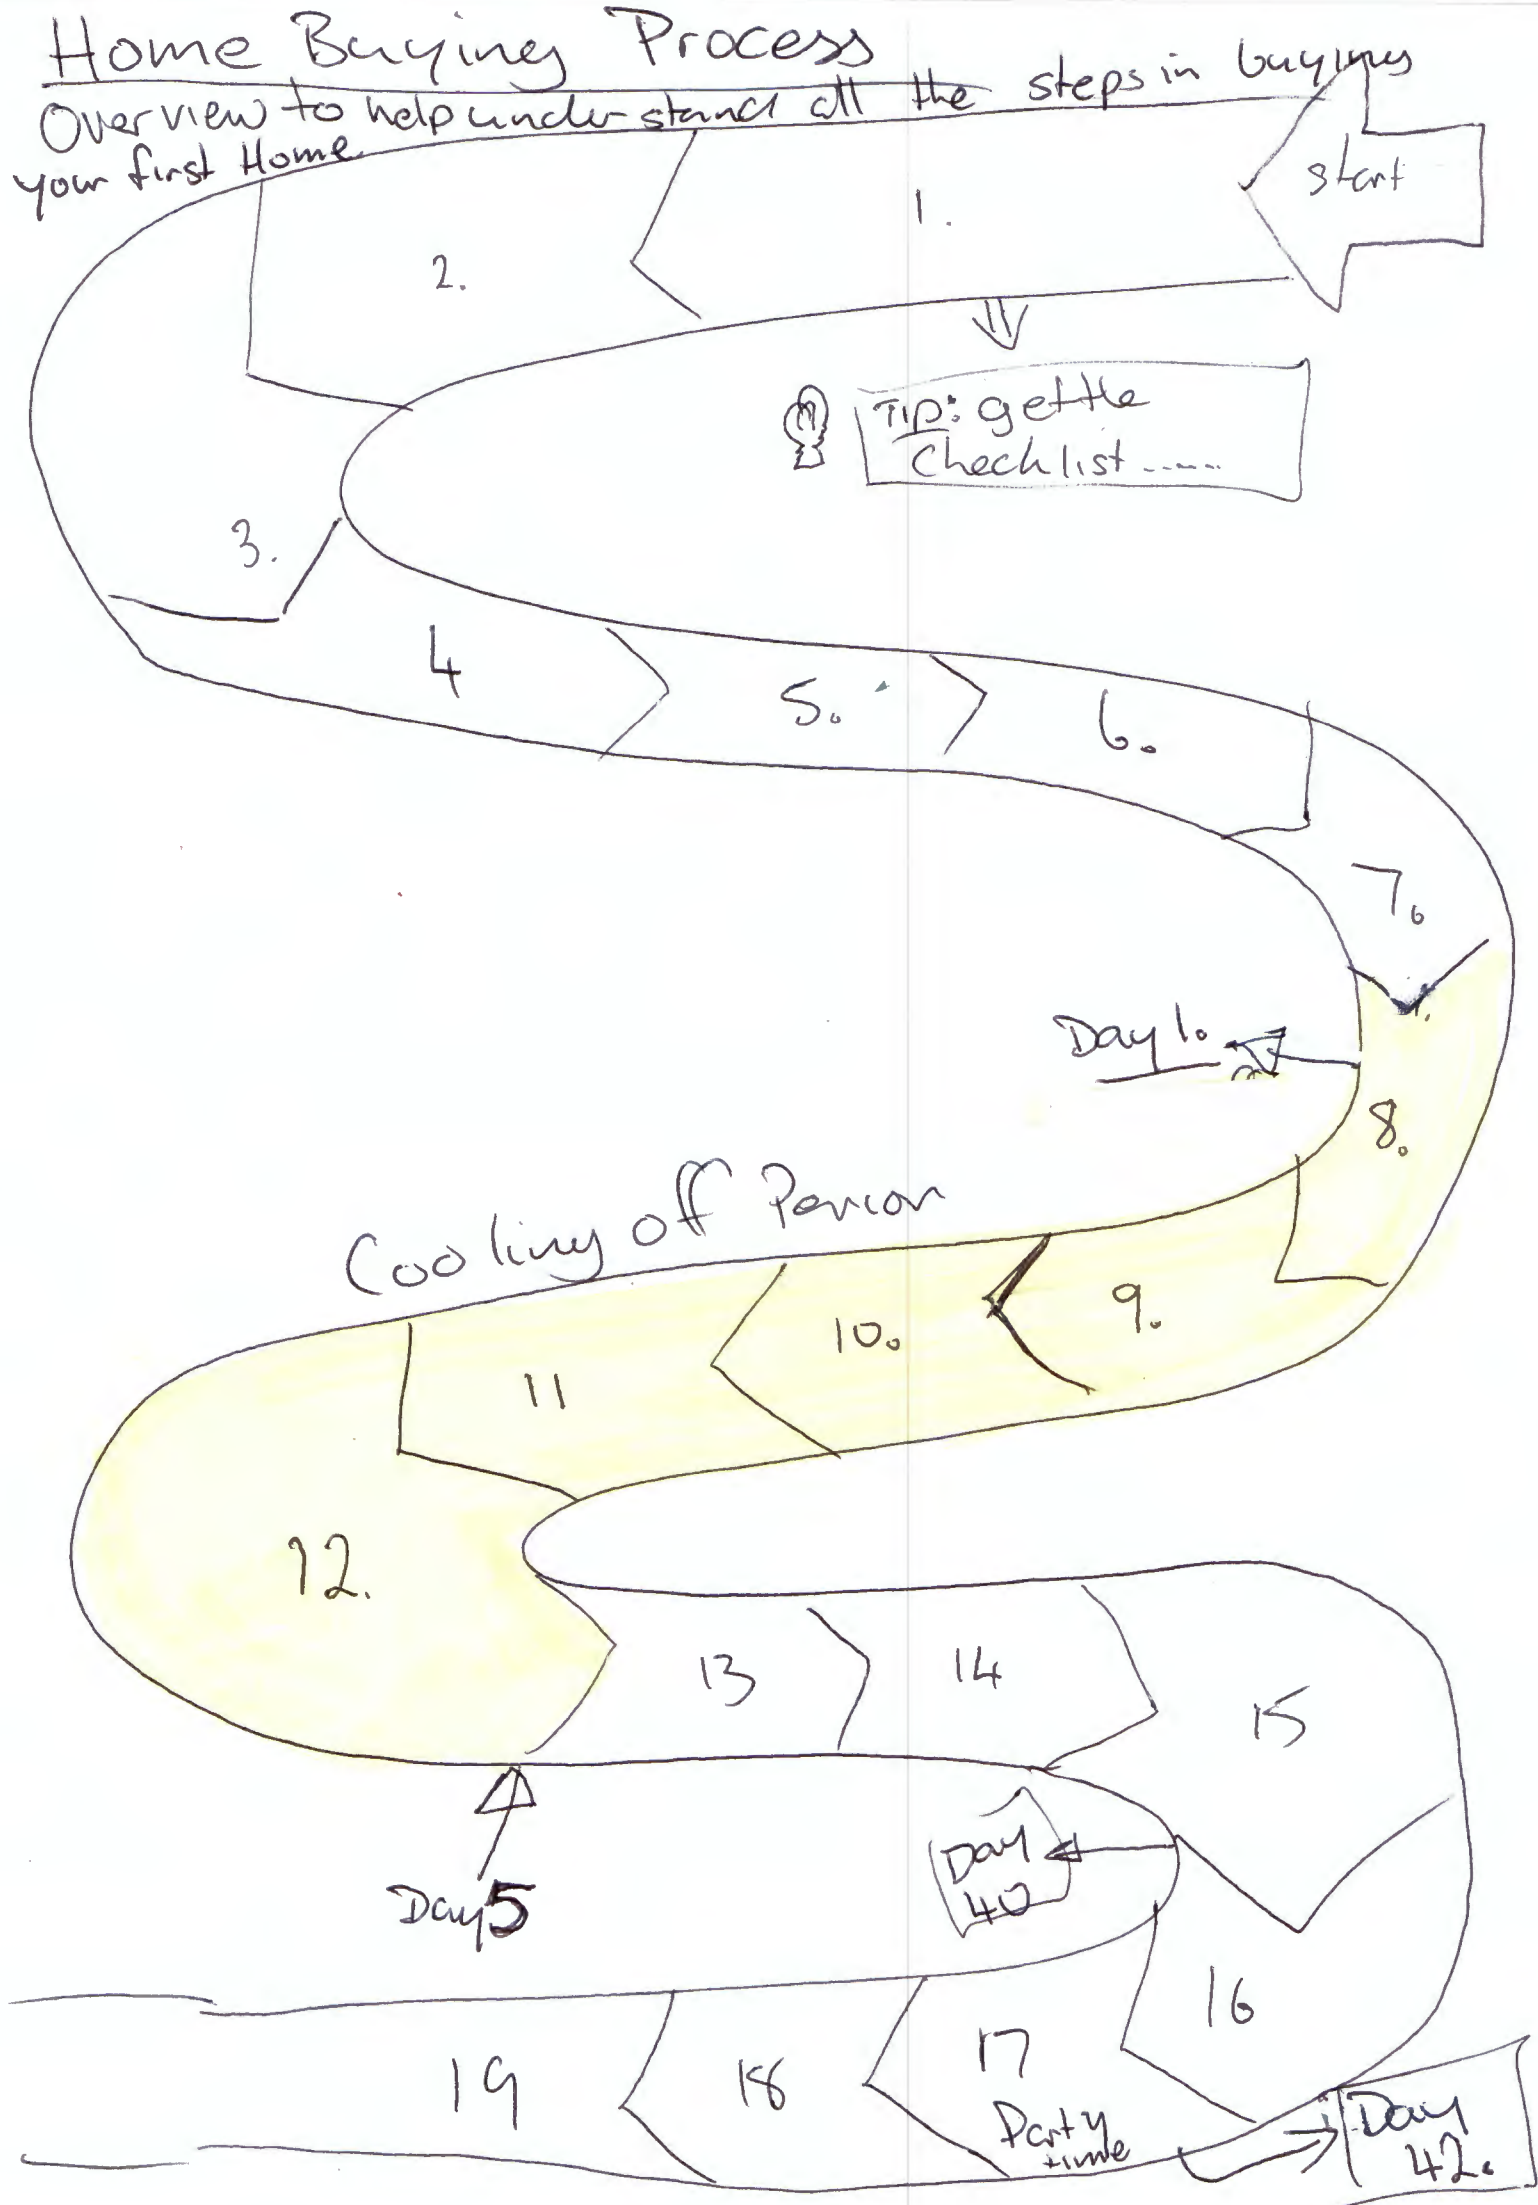 Home Buying Process
Overview to help understand all the steps in buying
your first Home
start
1.
2.
TIP: get the
Checklist ......
3.
4
5.
6.
7.
Day 1.
8.
Cooling off Period
9.
10.
11
12.
13
14
15
Day 5
Day
40
16
17
Party
time
18
19
Day
42.